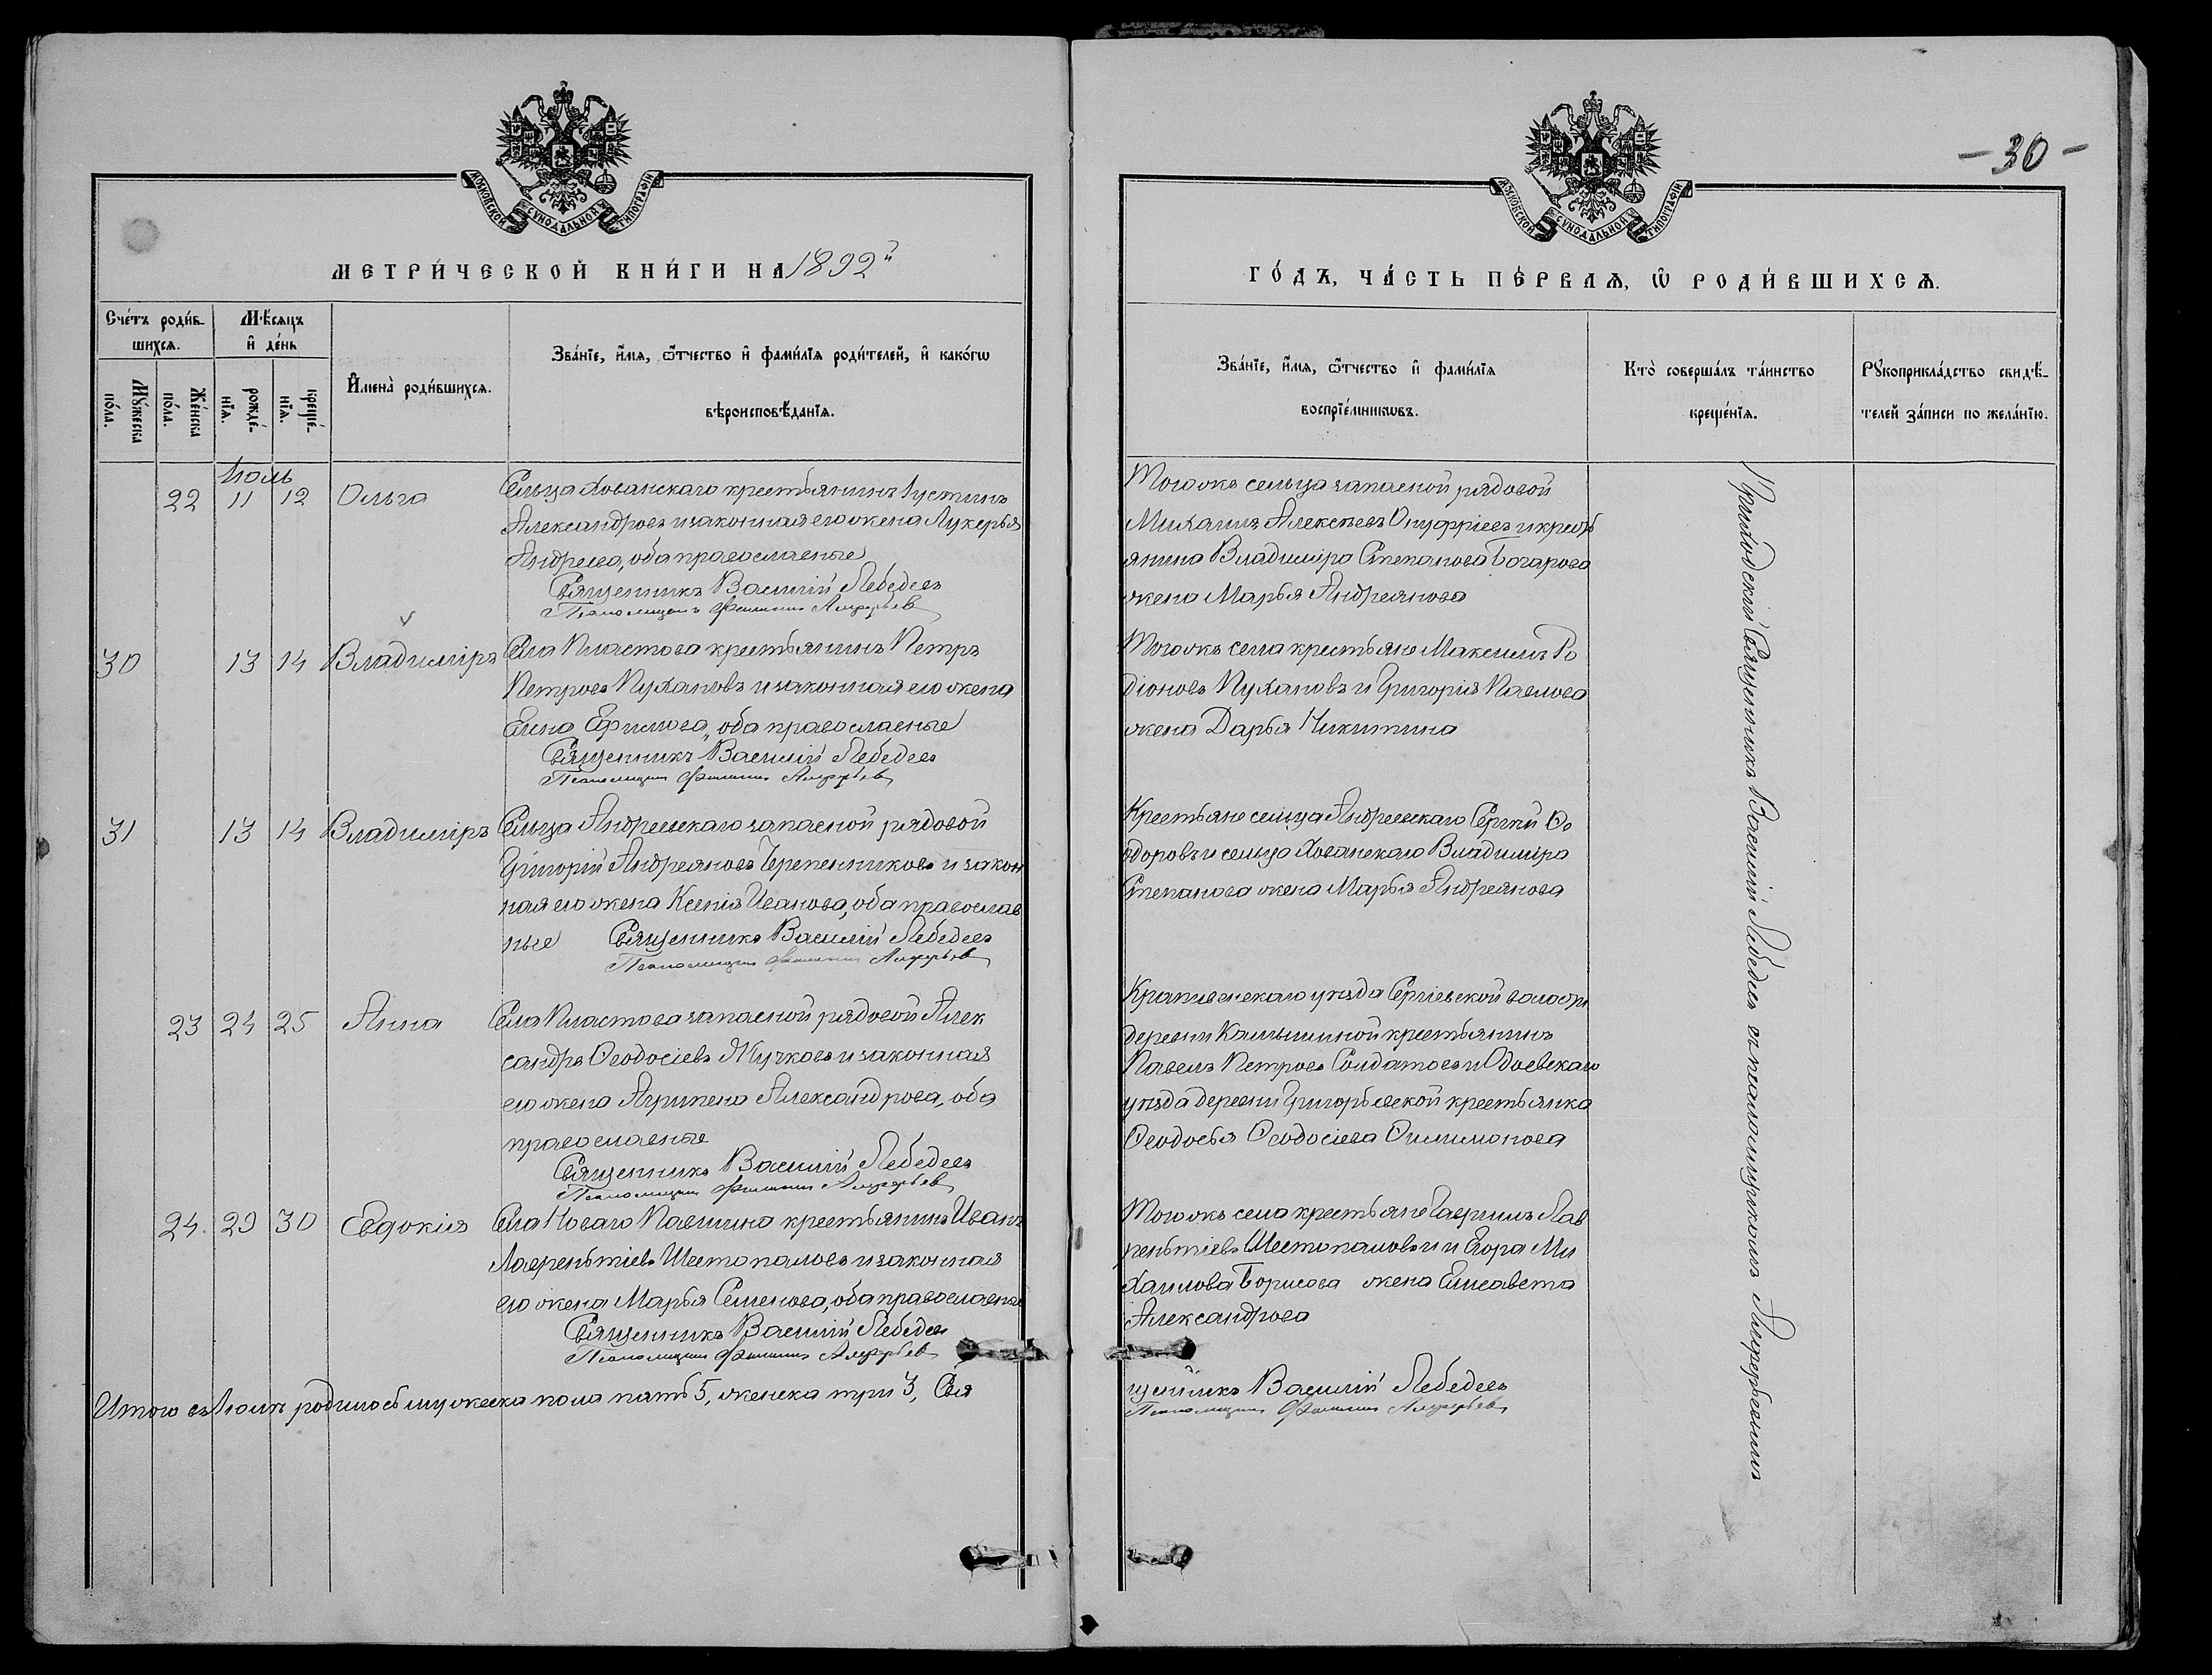 МОСКОВСКОЙ СУНОДАЛЬНОЙ ТИПОГРАФІИ
МЕТРИ́ЧЕСКОЙ КНИ́ГИ НА 1892й
Сче́тъ роди́в-
шихсѧ.
Мѣ́сѧцъ
и҆ де́нь
Мꙋ́жеска
по́ла.
Же́нска
по́ла.
рожде́-
нїѧ.
креще́-
нїѧ.
И҆мена̀ роди́вшихсѧ.
Зва́нїе, и҆́мѧ, ѻ҆́тчество и҆ фами́лїѧ роди́телей, и҆ како́гѡ
вѣроисповѣ́данїѧ.
Іюль
22 11 12 Ольга
Сельца Хованскаго крестьянинъ Іустинъ
Александровъ и законная его жена Лукерья
Андреева, оба православные
Священникъ Василій Лебедевъ
Псаломщикъ Филиппъ Алферьев
30 13 14 Владиміръ
Села Пластова крестьянинъ Петръ
Петровъ Пухановъ и законная его жена
Елена Ефимова, оба православные
Священникъ Василій Лебедевъ
Псаломщикъ Филиппъ Алферьев
31 13 14 Владиміръ
Сельца Андреевскаго запасной рядовой
Григорій Андреяновъ Черепенниковъ и закон
ная его жена Ксенія Иванова, оба православ
ные Священникъ Василій Лебедевъ
Псаломщикъ Филиппъ Алферьев
23 24 25 Анна
Села Пластова запасной рядовой Алек
сандръ Ѳеодосіевъ Жучковъ и законная
его жена Агрипена Александрова, оба
православные
Священникъ Василій Лебедевъ
Псаломщикъ Филиппъ Алферьев
24 29 30 Евдокія
Села Новаго Павшина крестьянинъ Иванъ
Лаврентіевъ Шестопаловъ и законная
его жена Марья Семенова, оба православные
Священникъ Василій Лебедев
Псаломщикъ Филиппъ Алферьев
Итого въ Іюлѣ родилось мужеска пола пять 5, женска три 3, Свя
- 30 -
МОСКОВСКОЙ СУНОДАЛЬНОЙ ТИПОГРАФІИ
ГО́ДЪ, ЧА́СТЬ ПЕ́РВАѦ, Ѡ҆ РОДИ́ВШИХСѦ.
Зва́нїе, и҆́мѧ, ѻ҆́тчество и҆ фами́лїѧ
воспрїе́мникѡвъ.
Кто̀ соверша́лъ та́инство
креще́нїѧ.
Рꙋкоприкла́дство свидѣ́-
телей за́писи по жела́нїю.
Тогожъ сельца запасной рядовой
Михаилъ Алексѣевъ Онуфріевъ и кресть
янина Владиміра Степанова Богарова
жена Марья Андреянова
Тогожъ села крестьяне Максимъ Ро
діоновъ Пухановъ и Григорія Павлова
жена Дарья Никитина
Крестьяне сельца Андреевскаго Сергѣй Ѳе
одоровъ и сельца Хованскаго Владиміра
Степанова жена Марья Андреянова
Крапивенскаго уѣзда Сергіевской волости
деревни Камышиной крестьянинъ
Павелъ Петровъ Солдатовъ и Одоевскаго
уѣзда деревни Григорьевской крестьянка
Ѳеодосья Ѳеодосіева Филимонова
Тогожъ села крестьяне Гавріилъ Лав
рентіевъ Шестопаловъ и Егора Ми
хаилова Борисова жена Елисавета
Александрова
щенникъ Василій Лебедевъ
Псаломщикъ Филиппъ Алферьев
Приходскій Священникъ Василій Лебедевъ съ псаломщикомъ Алферьевымъ